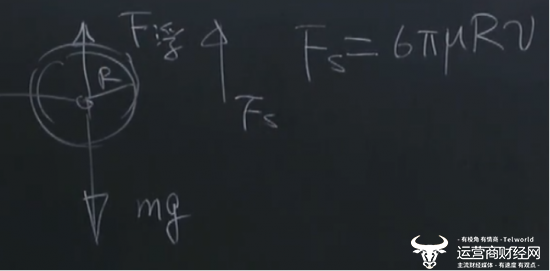 F浮
Fs=6πμRv
R
Fs
mg
-有棱角 有情商-Telworld
运营商财经网
主流财经媒体-有速度 有观点-